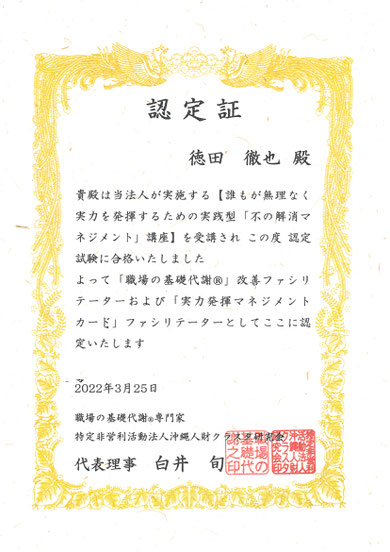 認定証
徳田 徹也 殿
貴殿は当法人が実施する【誰もが無理なく
実力を発揮するための実践型「不の解消マ
ネジメント」講座】を受講され この度 認定
試験に合格いたしました
よって「職場の基礎代謝®」改善ファシリ
テーターおよび「実力発揮マネジメント
カード」ファシリテーターとしてここに認
定いたします
2022年3月25日
職場の基礎代謝®専門家
特定非営利活動法人沖縄人財クラスタ研究会
代表理事 白井 旬
職場の
基礎代
謝之印